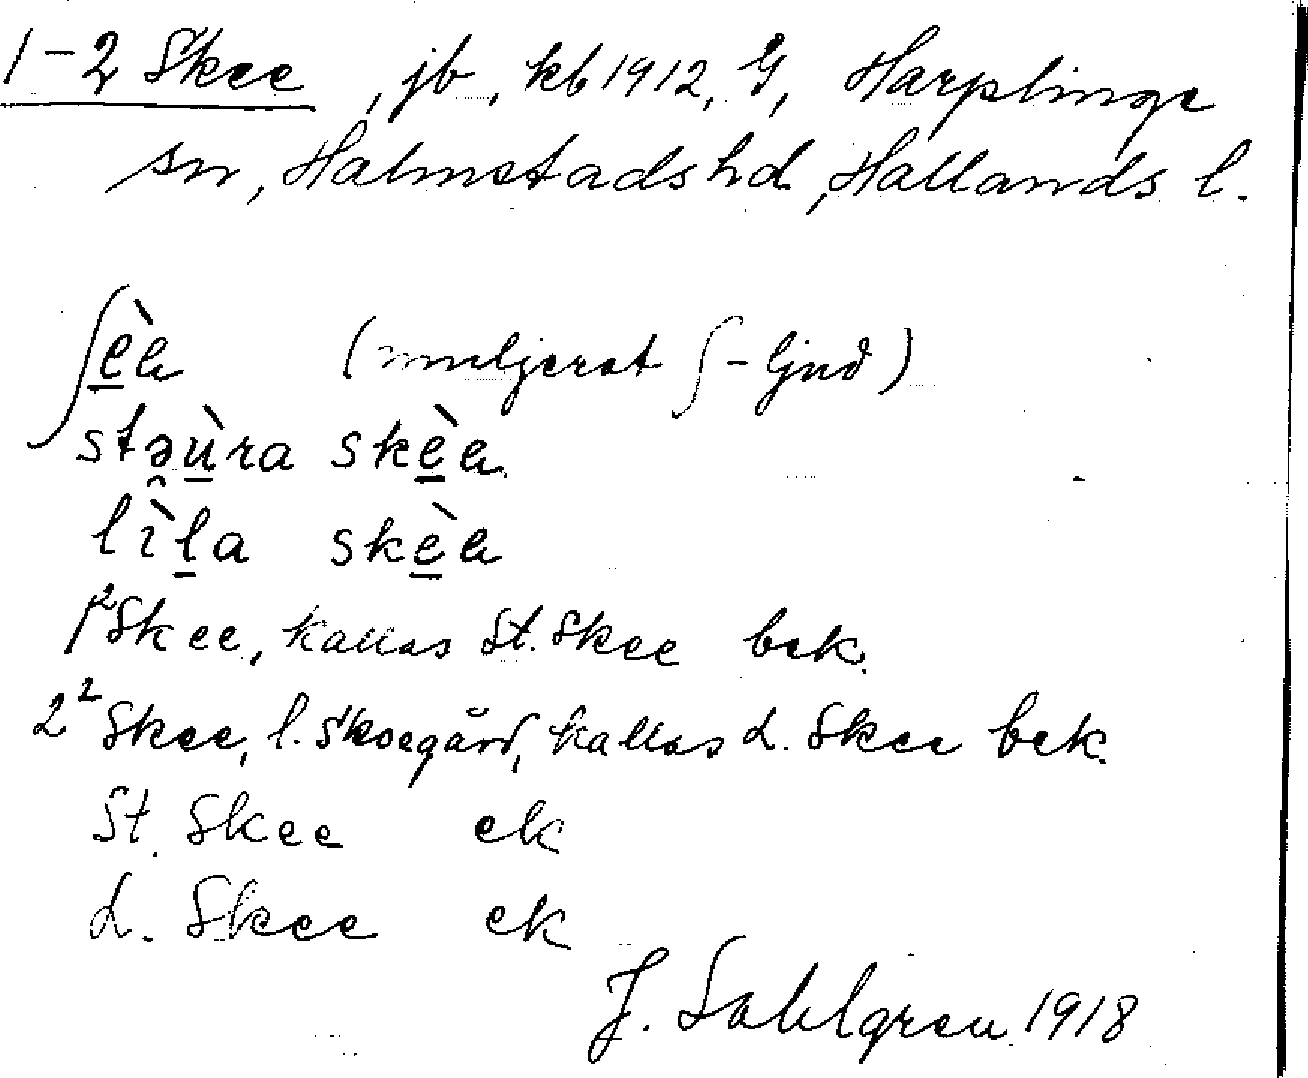 1-2 Skee, jb, kb 1912, G, Harplinge
sn, Halmstads hd, Hallands l.
ʃè̱a (muljerat ʃ-ljud)
stə̯ṳ̀ra skè̱a
lìḻa skè̱a
1² Skee, kallas St. Skee bek.
2² Skee, l. Skoegård, kallas L. Skee bek.
St. Skee ek
L. Skee ek
J. Sahlgren 1918